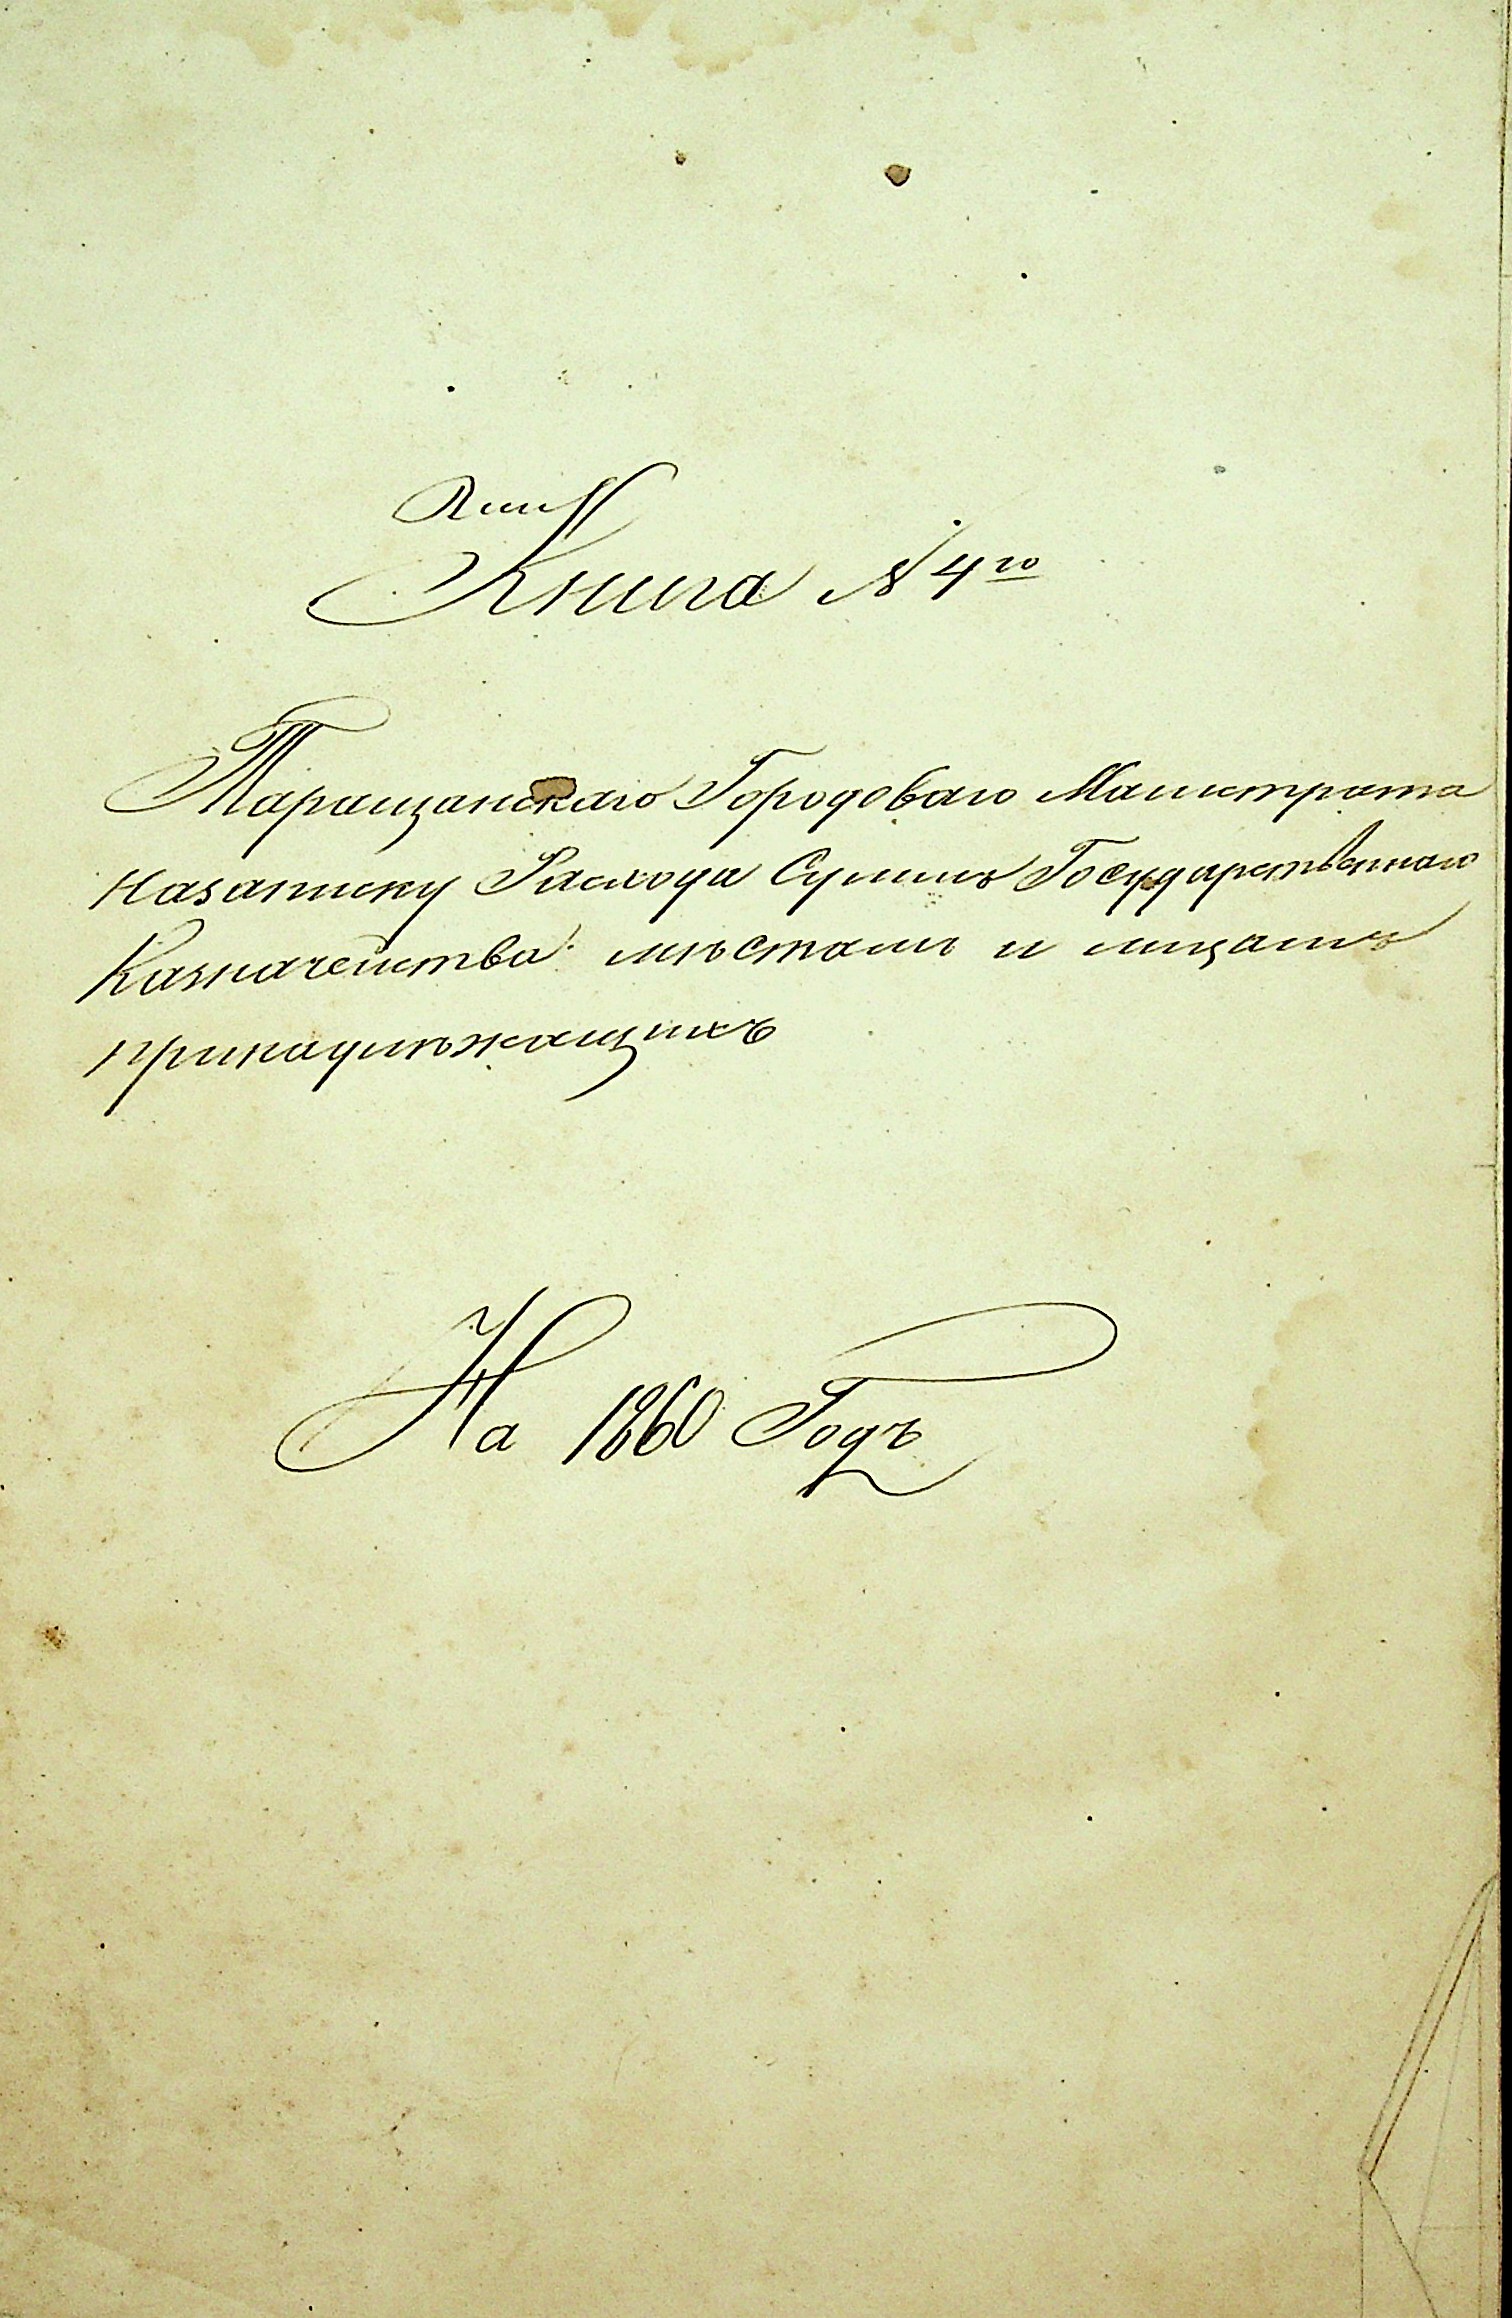 Книга № 4го
Таращанскаго Городоваго Магистрата
Назаписку Расхода Суммъ Государственнаго
Казначейства мѣстамъ и лицамъ
принадлѣжащихъ
На 1860 Годъ